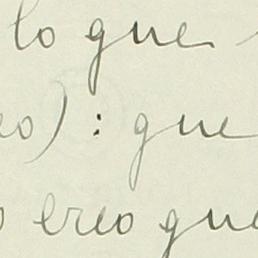 lo que
eo): que
o creo que